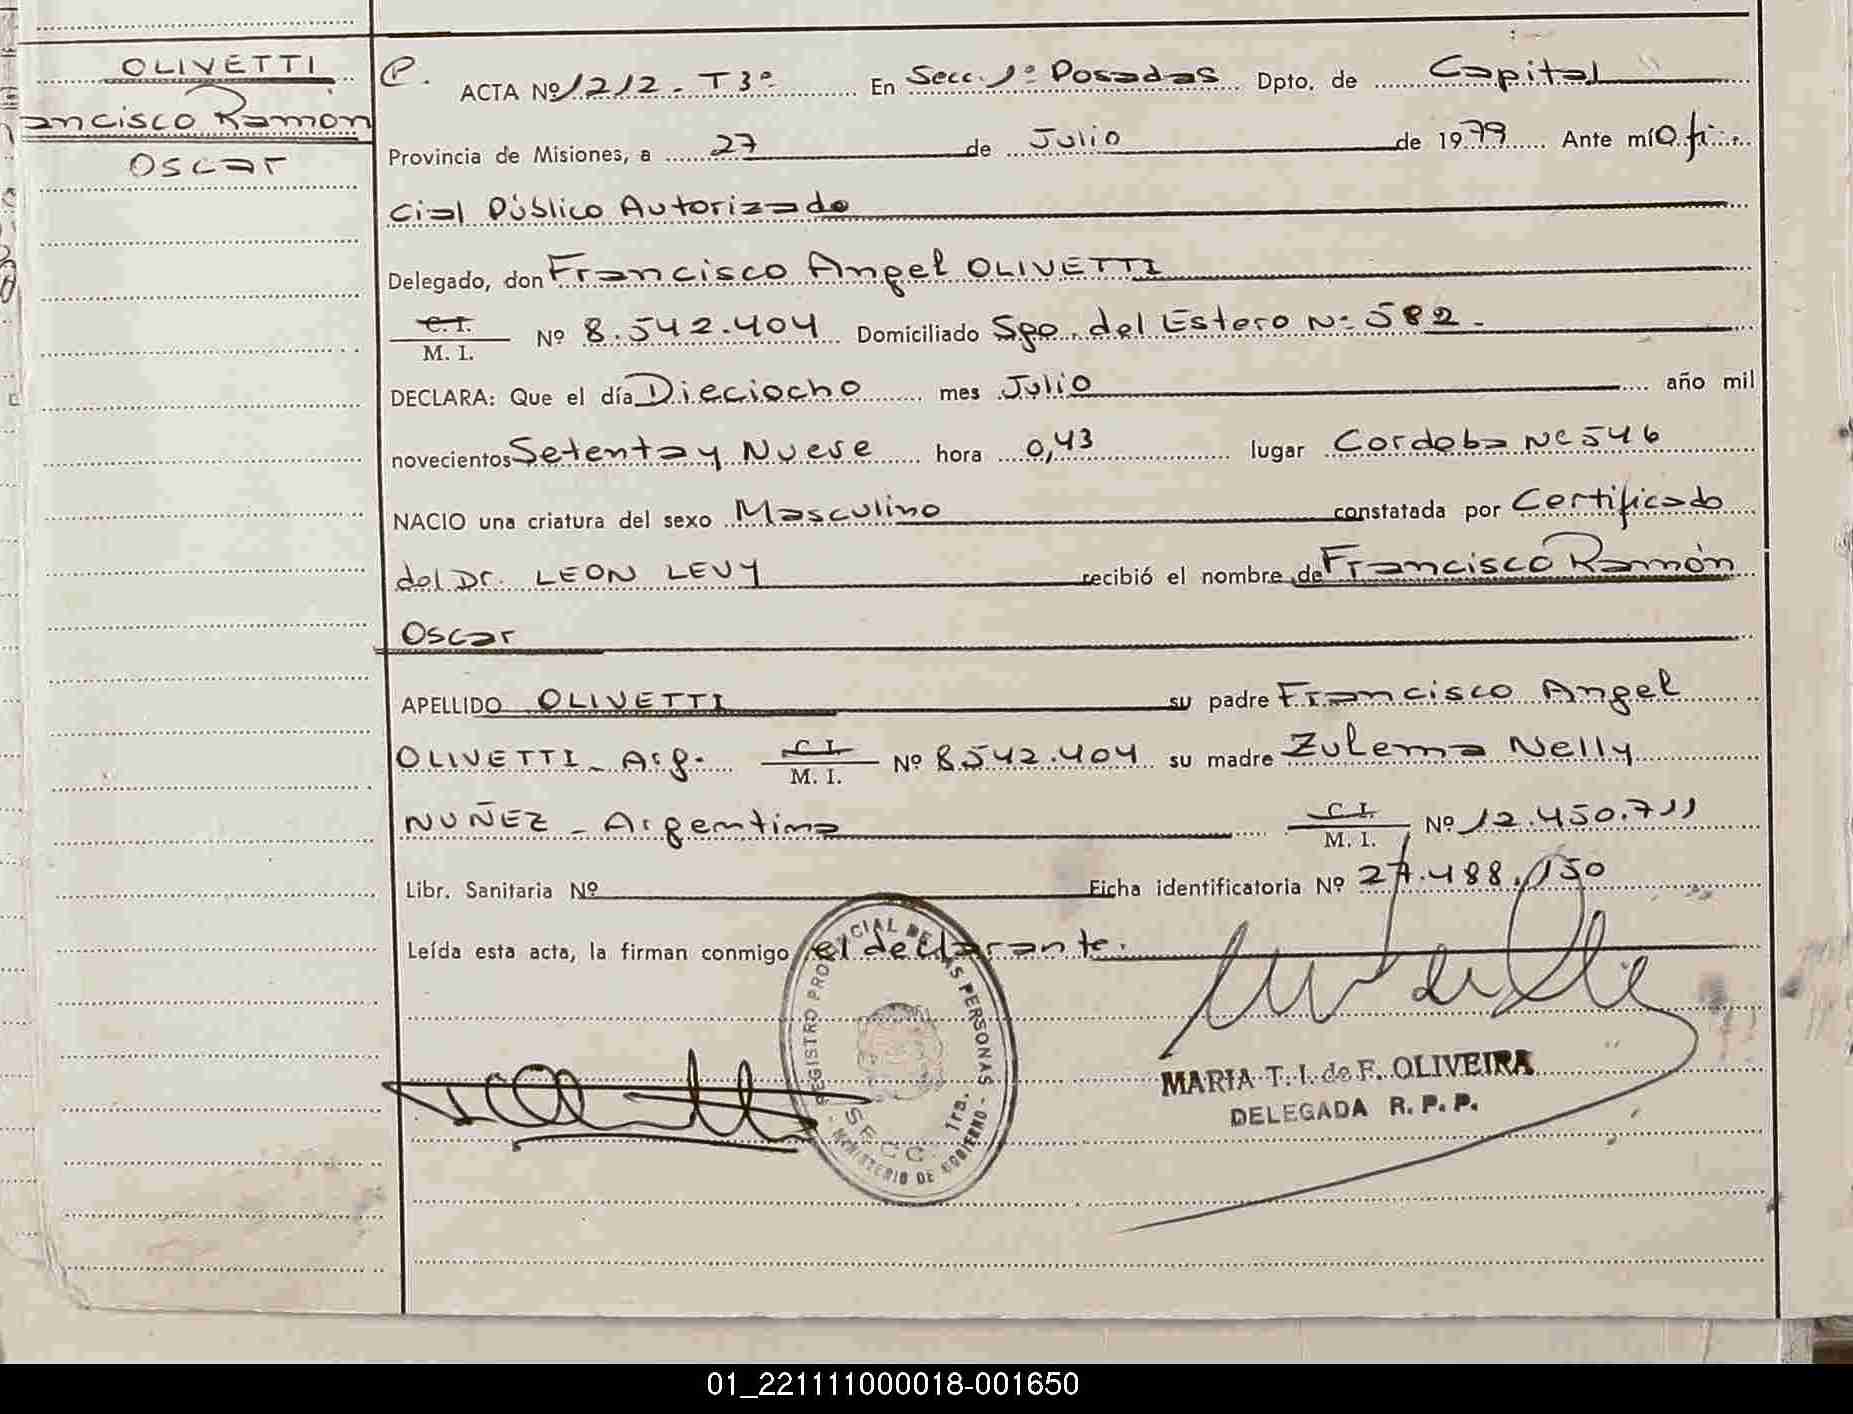 OLIVETTI
ancisco Ramón
Oscar
P. ACTA Nº 1212 - T 3º En Secc. 1º Posadas Dpto. de Capital
Provincia de Misiones, a 27 de Julio de 1979 Ante mí Ofi
cial Público Autorizado
Delegado, don Francisco Angel OLIVETTI
C. I.
M. I. Nº 8.542.404 Domiciliado Sgo. del Estero Nº 582.
DECLARA: Que el día Dieciocho mes Julio año mil
novecientos Setenta y Nueve hora 0,43 lugar Cordoba Nº 546
NACIO una criatura del sexo Masculino constatada por Certificado
del Dr. LEON LEVY recibió el nombre de Francisco Ramón
Oscar
APELLIDO OLIVETTI su padre Francisco Angel
OLIVETTI - Arg. C. I.
M. I. Nº 8.542.404 su madre Zulema Nelly
NUÑEZ - Argentina C. I.
M. I. Nº 12.450.711
Libr. Sanitaria Nº Ficha identificatoria Nº 27.488.150
Leída esta acta, la firman conmigo el declarante.
REGISTRO PROVINCIAL DE LAS PERSONAS
SECC. 1ra.
- MINISTERIO DE GOBIERNO -
MARIA T. I. de F. OLIVEIRA
DELEGADA R. P. P.
01_221111000018-001650